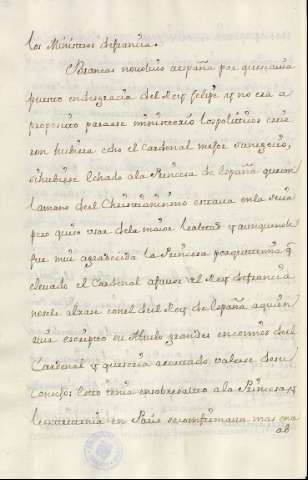 los Ministros defrancia.
Brancas novolvio aespaña por quehavia
puesto endesgracia del Rey felipe y no era a
proposito paraese ministerio lospoliticos creie
ron hubiera echo el cardenal mejor sunegocio,
sihubiese echado ala Princesa de españa quien
lamano deel Christianisimo estava enla suia
pero quiso usar dela maior lealtad y aunquenole
fue mui agradecida la Princesa porque temia q
elevado el Cardenal afavor el Rey defrancia
nosele alzase conel deel Rey de España aquien
avia escripto su Abuelo grandes encomios deel
Cardenal y queseria acertado valerse desu
consejos Esto tenia ensobresaltro ala Princesa, y
en Paris seconfirmava mas ena
ab